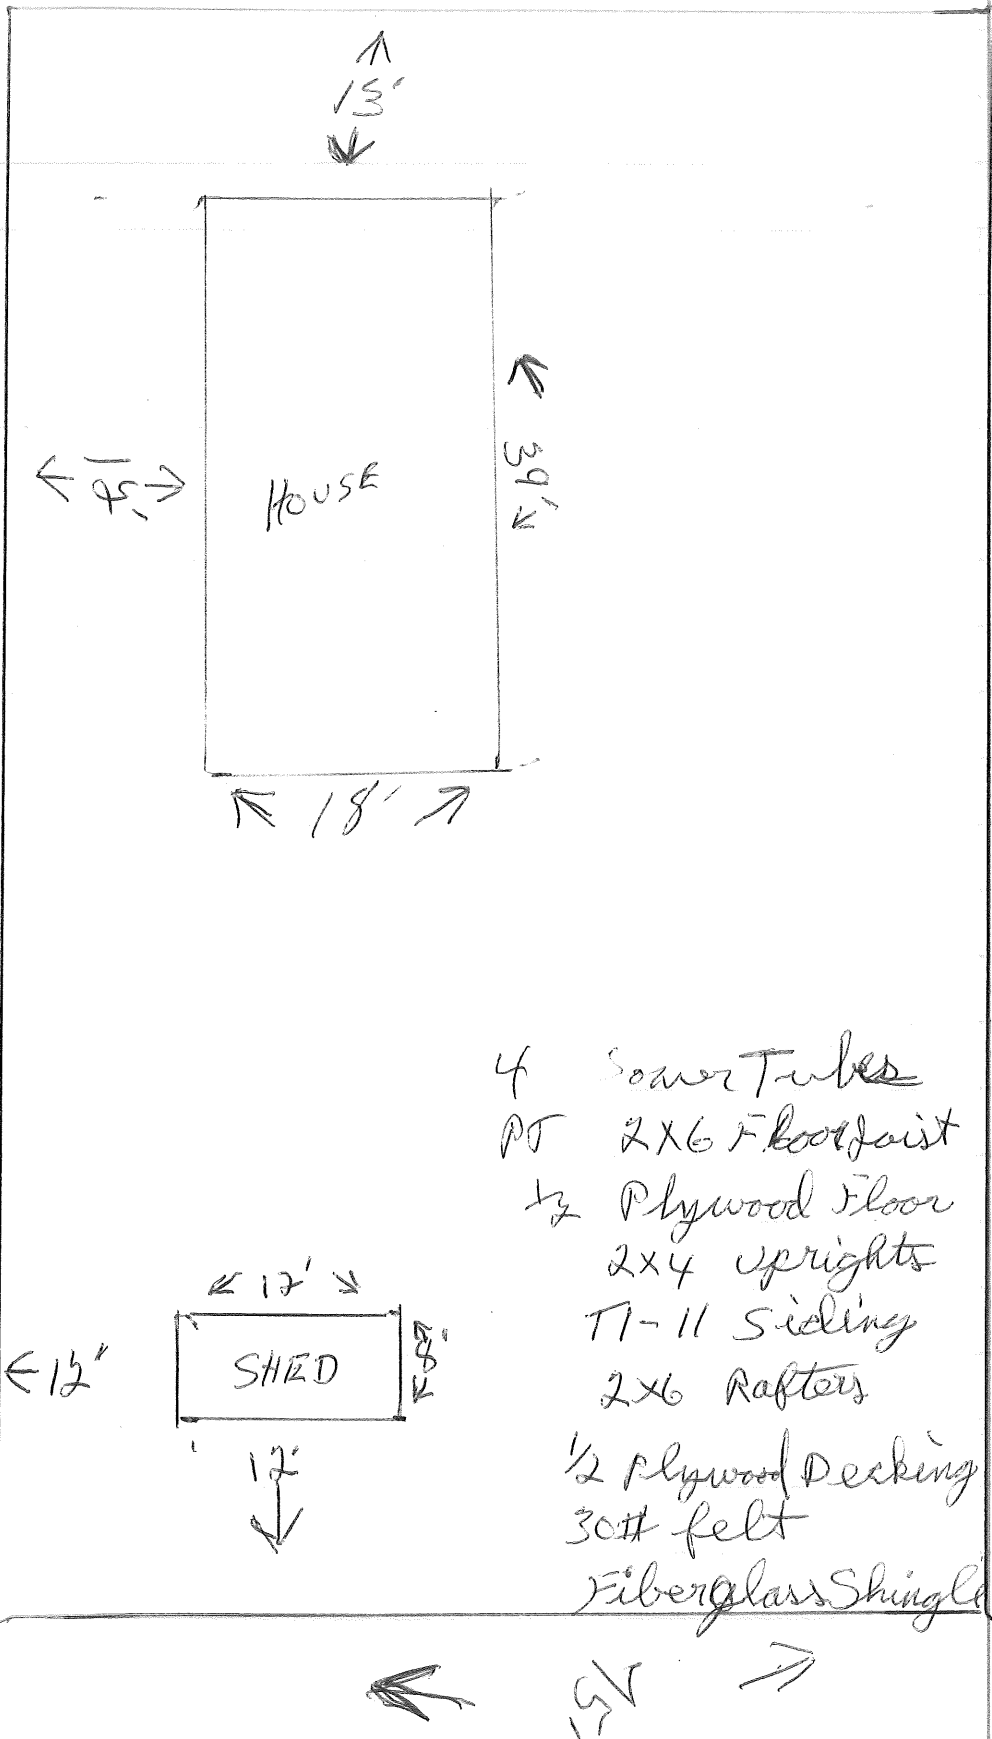 HOUSE
39'
18'
4 Soner Tubes
PT 2x6 Floor Joist
1/2 Plywood Floor
2x4 uprights
12'
T1-11 Siding
SHED
8'
2x6 Rafters
12'
1/2 Plywood Decking
30# felt
Fiberglass Shingle